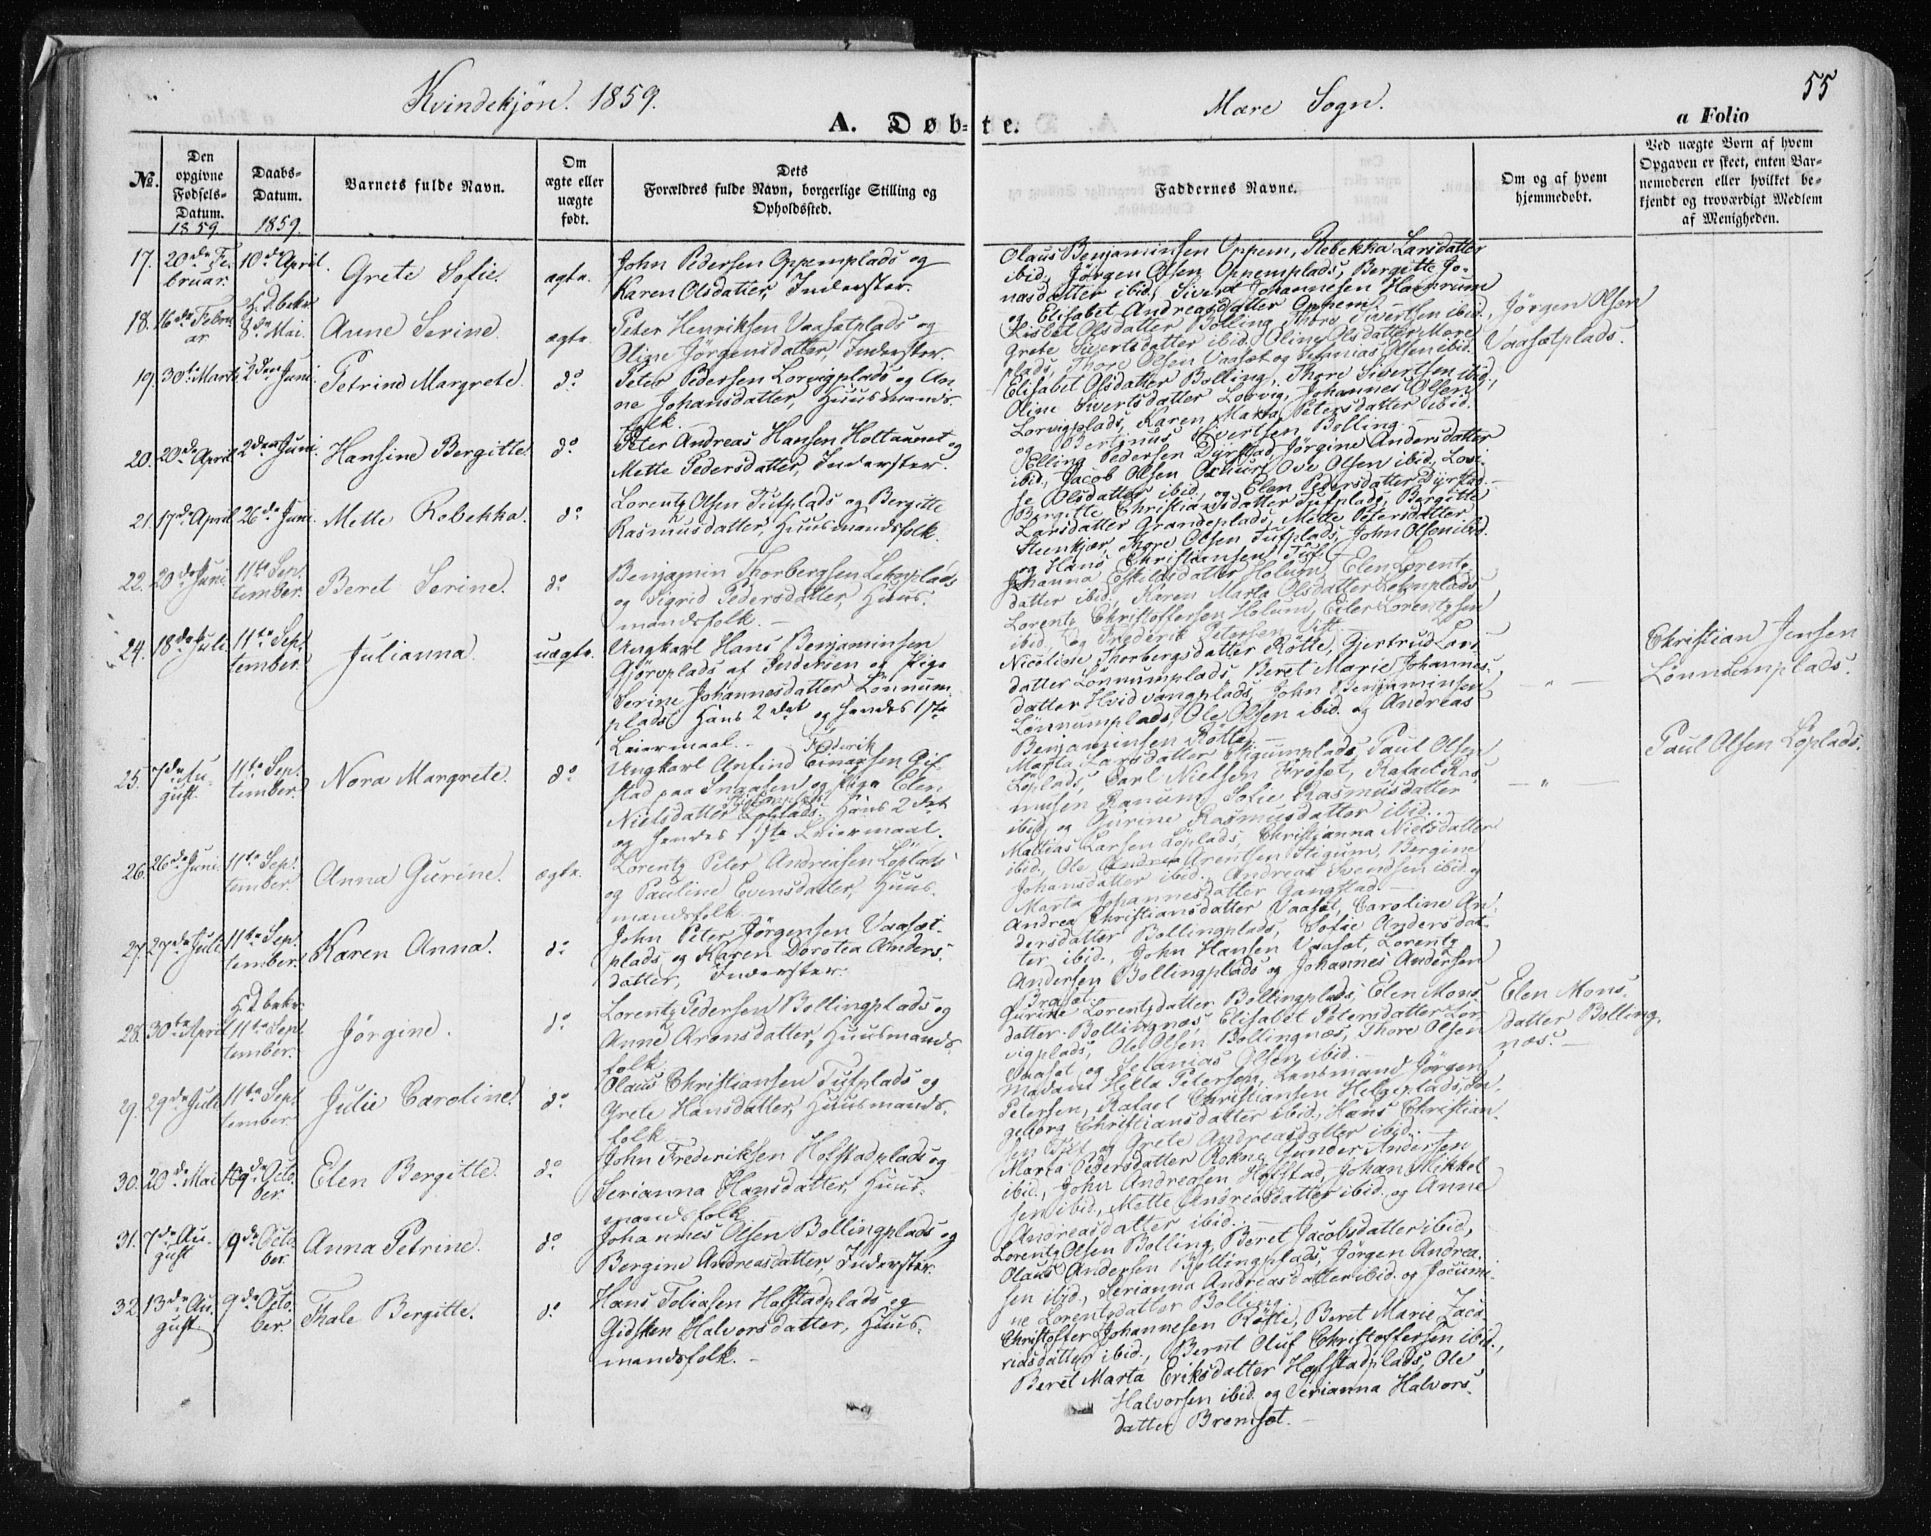 Kvindekjøn. 1859.
Mære Sogn.
55
A. Døbte.
a Folio
No.
Den opgivne Fødsels-Datum. 1859
Daabs-Datum. 1859.
Barnets fulde Navn.
Om ægte eller uægte født.
Dets Forældres fulde Navn, borgerlige Stilling og Opholdssted.
Faddernes Navne.
Om og af hvem hjemmedøbt.
Ved uægte Børn af hvem Opgaven er skeet, enten Barnemoderen eller hvilket bekjendt og troværdigt Medlem af Menigheden.
17. 20de Februar. 10de April. Grete Sofie. ægte.
John Pedersen Oppemplads og
Karen Olsdatter, Inderster.
Olaus Benjaminsen Oppem, Rebekka Larsdatter
ibid, Jørgen Olsen Oppemplads, Bergitte Jo-
nasdatter ibid, Sivert Johannesen Hamrum
og Elisabet Andreasdatter Oppem.
18. 16de Februar H.D. bekr. 8de Mai. Anne Serine. ægte.
Peter Henriksen Vaasetplads og
Oline Jørgensdatter, Inderster.
Lisbet Olsdatter Bolling, Thore Sivertsen ibid.,
Grete Sivertsdatter ibid, Oline Olsdatter Mære
plads, Thore Olsen Vaaset og Setanias Olsen ibid.
Jørgen Olsen
Vaasetplads.
19. 30te Marts 2den Juni. Petrind Margrete. do
Peter Pedersen Lorvigplads og An-
ne Johansdatter, Huusmands-
folk.
Elisabet Olsdatter Bolling, Thore Sivertsen ibid.,
Oline Sivertsdatter Lorvig, Johannes Olsen
Lorvigplads, Karen Marta Petersdatter ibid.
og Bertinus Evertsen Bolling.
20. 20de April 2den Juni. Hansine Bergitte. do
Peter Andreas Hansen Holtaunet og
Mette Pedersdatter, Inderster.
Elling Pedersen Dyrstad, Jørgine Andersdatter
ibid, Jacob Olsen Ove Olsen ibid, Lovi-
se Olsdatter ibid, og Elen Pedersdatter Dyrstad.
21. 17de April 26de Juni. Mette Rebekka. do
Lorentz Olsen Tufplads og Bergitte
Rasmusdatter, Huusmandsfolk.
Bergitte Christiansdatter Tufplads, Bergitte
Larsdatter Grandeplads, Mette Petersdatter
Steenkjær, Thore Olsen Tufplads, John Olsen ibid.
og Hans Christiansen Tuf.
22. 20de Juni 11te September. Beret Serine. do
Benjamin Thorbergsen Lekmplads
og Sigrid Pedersdatter, Huus-
mandsfolk.
Johanna Eskildsdatter Holum, Elen Lorents-
datter ibid, Karen Marta Olsdatter Lekmplads
Lorents Christoffersen Holum, Eiler Lorentzen
ibid. og Frederik Petersen Vist.
24. 18de Juli 11te September. Julianna. uægte.
Ungkarl Hans Benjaminsen
Gjørvplads af Inderøen og Pige
Serine Johannesdatter Lønnum-
plads. Hans 2det og hendes 1ste
Leiermaal.
Nicoline Thorbergsdatter Røtte, Gjertrud Lars-
datter Lønnumplads, Beret Marie Johannes-
datter Hvidvangplads, John Benjaminsen
Lønnumplads, Ole Olsen ibid. og Andreas
Benjaminsen Røtte.
— " —
Christian Jensen
Lønnumplads.
25. 7de August. 11te September. Nora Margrete. do
Frederik
Ungkarl Anfind Einarsen Gif-
stad paa Inderøen og Pige Elen
Nielsdatter Løplads. Hans 2det
og hendes 1ste Leiermaal.
Marta Larsdatter Stigumplads, Paul Olsen
Løplads, Carl Nielsen Frøset, Rafael Ras-
musen Ranum, Sofie Rasmusdatter
ibid. og Gurine Rasmusdatter ibid.
— " —
Paul Olsen Løplads.
26. 26de Juni 11te September. Anna Gurine. ægte.
Lorentz Peter Andreasen Løplads
og Pauline Evensdatter, Huus-
mandsfolk.
Mattias Larsen Løplads, Christianna Nielsdatter
ibid, Ole Andrea Arentsen Stigum, Bergine
Johansdatter ibid, Andreas Svendsen ibid. og
Marta Johannesdatter Gangstad.
27. 27de Juli 11te September. Karen Anna. do
John Peter Jørgensen Vaaset-
plads og Karen Dorotea Anders-
datter, Inderster.
Andrea Christiansdatter Vaaset, Caroline An-
dersdatter Bollingplads, Sofie Andersdat-
ter ibid., John Hansen Vaaset, Lorentz
Andersen Bollingplads og Johannes Andersen
Bræset.
28. 30te April H.D. bekr. 11te September. Jørgine. do
Lorentz Pedersen Bollingplads og
Anne Aronsdatter, Huusmands-
folk.
Gurine Lorentzdatter Bollingplads, Elen Mons-
datter Bollingnæs, Elisabet Petersdatter Lor-
vigplads, Ole Olsen Bollingnæs, Thore Olsen
Vaaset og Setanias Olsen ibid.
Elen Mons-
datter Bolling-
næs.
29. 29de Juli 11te September. Julie Caroline. do
Olaus Christiansen Tufplads og
Grete Hansdatter, Huusmands-
folk
Madame Hella Petersen, Lensmand Jørgen
Petersen, Rafael Christiansen Helgeplads, In-
geborg Christiansdatter ibid., Hans Christian-
sen Tuf og Grete Andreasdatter ibid.
30. 20de Mai 9de October. Elen Bergitte. do
John Frederiksen Hofstadplads og
Serianna Hansdatter, Huus-
mandsfolk
Marta Pedersdatter Rokne, Gunder Andersen
ibid., John Andreasen Hofstad, Johan Mikkel-
sen ibid., Mette Andreasdatter ibid. og Anne
Andreasdatter ibid.
31. 7de August 9de October. Anna Petrine. do
Johannes Olsen Bollingplads og
Bergine Andreasdatter, Inderster.
Lorentz Olsen Bolling, Beret Jacobsdatter ibid,
Olaus Andersen Bollingplads, Jørgen Andrea-
sen ibid., Serianna Andreasdatter ibid. og Jocumi-
ne Lorentsdatter Bolling.
32. 13de August 9de October. Thale Bergitte. do
Hans Tobiasen Hofstadplads og
Gidsken Halvorsdatter, Huus-
mandsfolk.
Christoffer Johannesen Røtte, Beret Marie Zaca-
riasdatter ibid., Bernt Oluf Christoffersen ibid.,
Beret Marta Eriksdatter Hofstadplads, Ole
Halvorsen ibid. og Serianna Halvors-
datter Bremset.